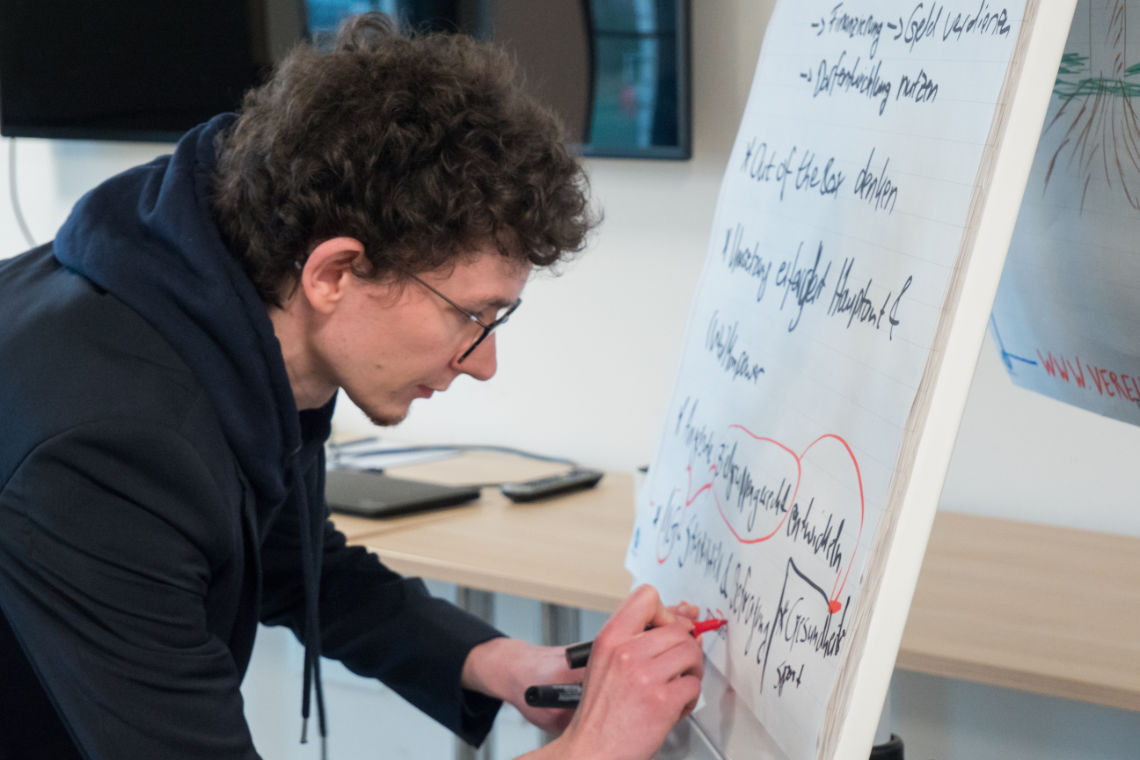 -> Finanzierung -> Geld verdienen
-> Dorfentwicklung nutzen
* Out of the Box denken
* Umsetzung erfolgt Hauptamt &
* Angebote zielgruppengerecht entwickeln
& Befragung
* Gesundheits
sport
WWW.VEREI